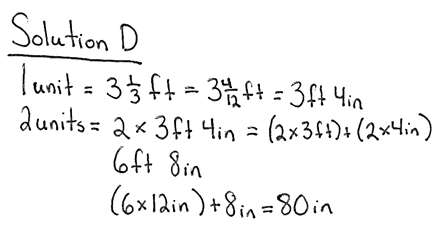 Solution D
1 unit = 3 1/3 ft = 3 4/12 ft = 3ft 4in
2 units = 2 × 3ft 4in = (2×3ft)+(2×4in)
6ft 8in
(6×12in)+8in=80in